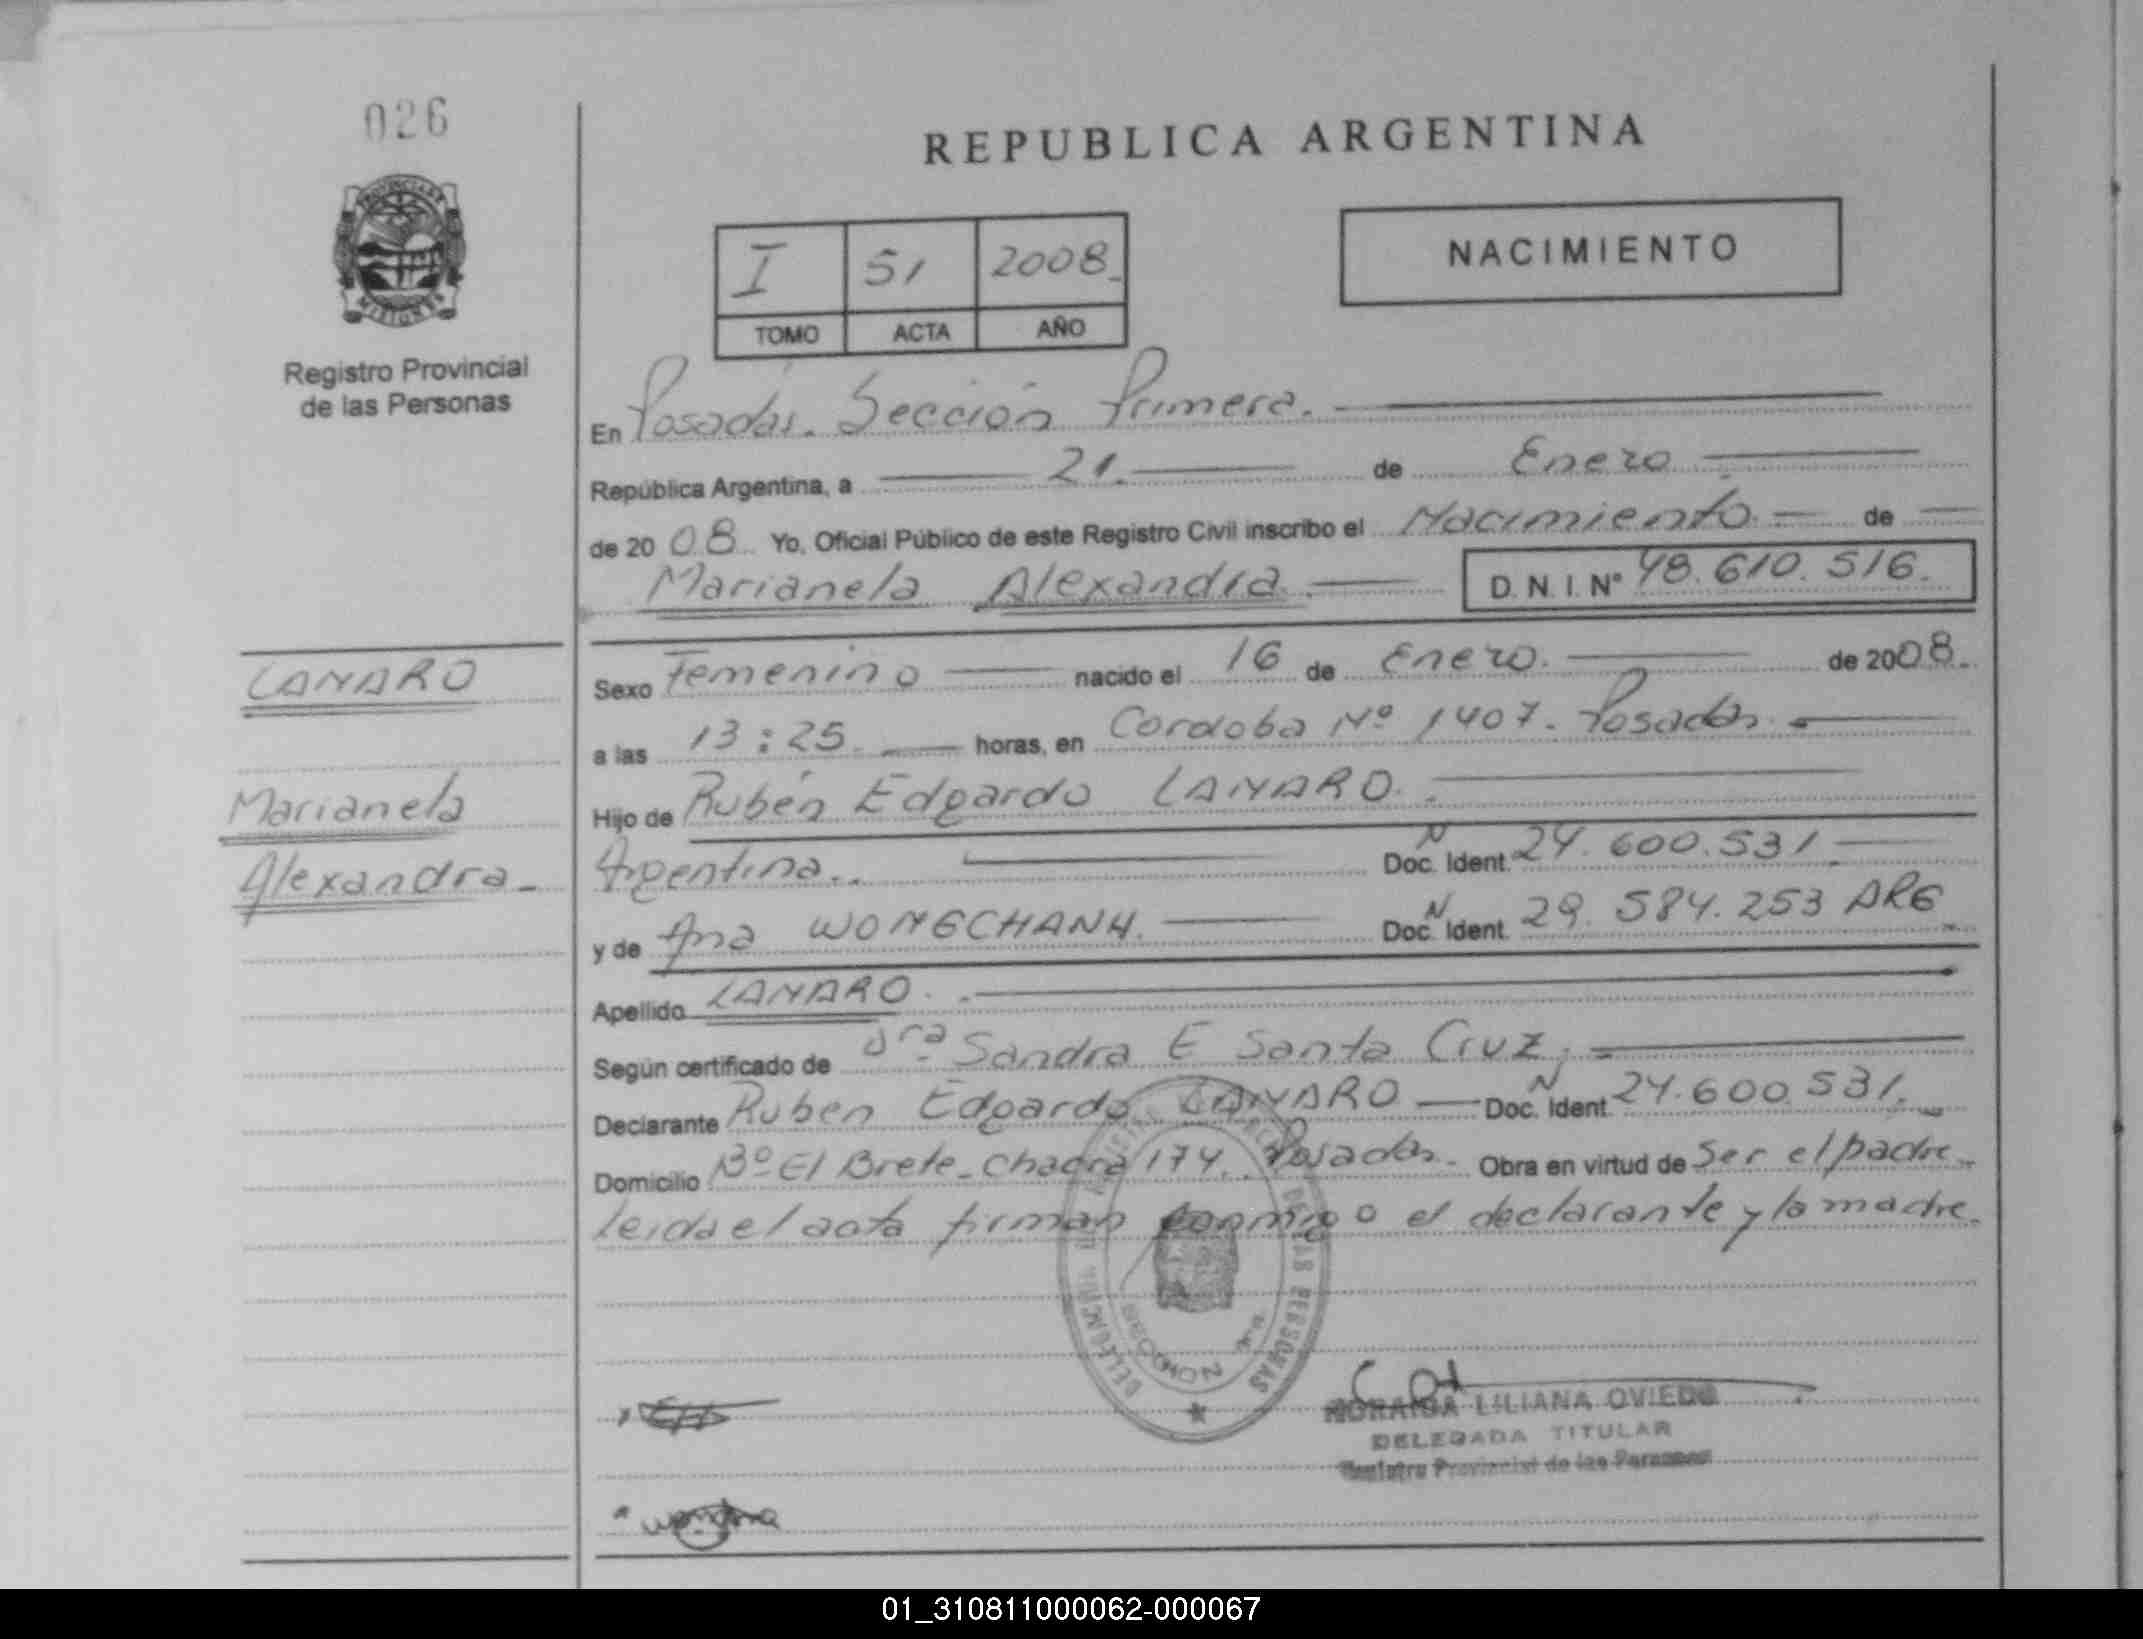 026
REPUBLICA ARGENTINA
NACIMIENTO
I 51 2008
TOMO ACTA AÑO
PROVINCIA DE
MISIONES
Registro Provincial
de las Personas
En Posadas. Sección Primera.
República Argentina, a 21. de Enero
de 2008. Yo, Oficial Público de este Registro Civil inscribo el Nacimiento de
Marianela Alexandra D.N.I. N° 48.610.516.
LANARO
Marianela
Alexandra
Sexo Femenino nacido el 16 de Enero. de 2008.
a las 13:25 horas, en Cordoba Nº 1407. Posadas.
Hijo de Rubén Edgardo LANARO.
Argentina.. Doc. N Ident. 24.600.531
y de Ana WONGCHANH. Doc. N Ident. 29.584.253 ARG
Apellido LANARO.
Según certificado de Dra Sandra E Santa Cruz.
Declarante Ruben Edgardo LANARO Doc. N Ident. 24.600.531.
Domicilio Bº El Brete - Chacra 174. Posadas. Obra en virtud de Ser el padre
leida el acta firman conmigo el declarante y la madre.
DELEGADA TITULAR
LILIANA OVIEDO
Registro Provincial de las Personas
DE LAS PERSONAS
01_310811000062-000067